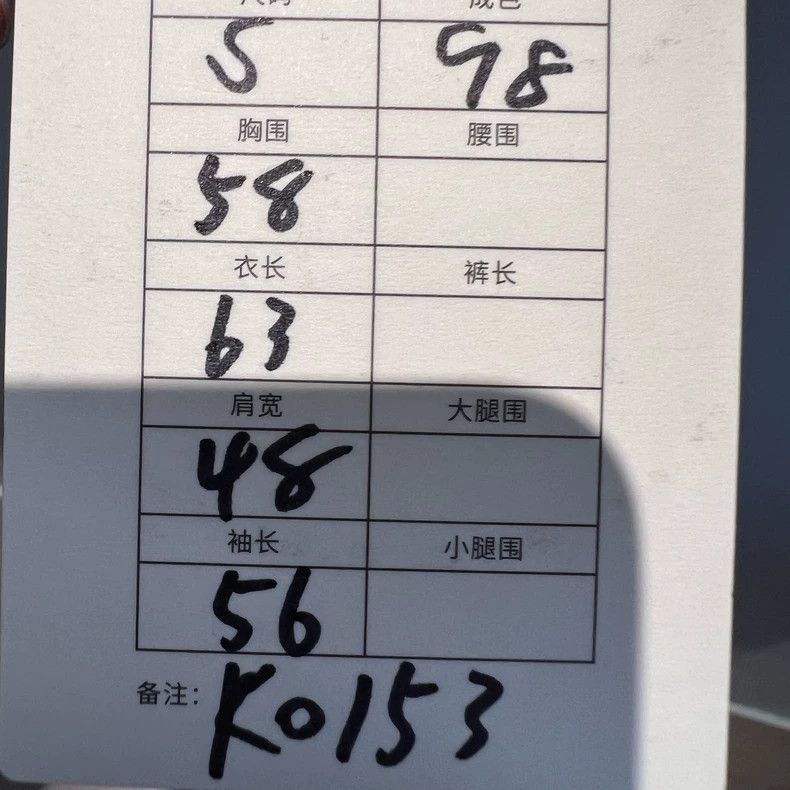 尺码 成色
S 98
胸围 腰围
58
衣长 裤长
63
肩宽 大腿围
48
袖长 小腿围
56
备注: K0153